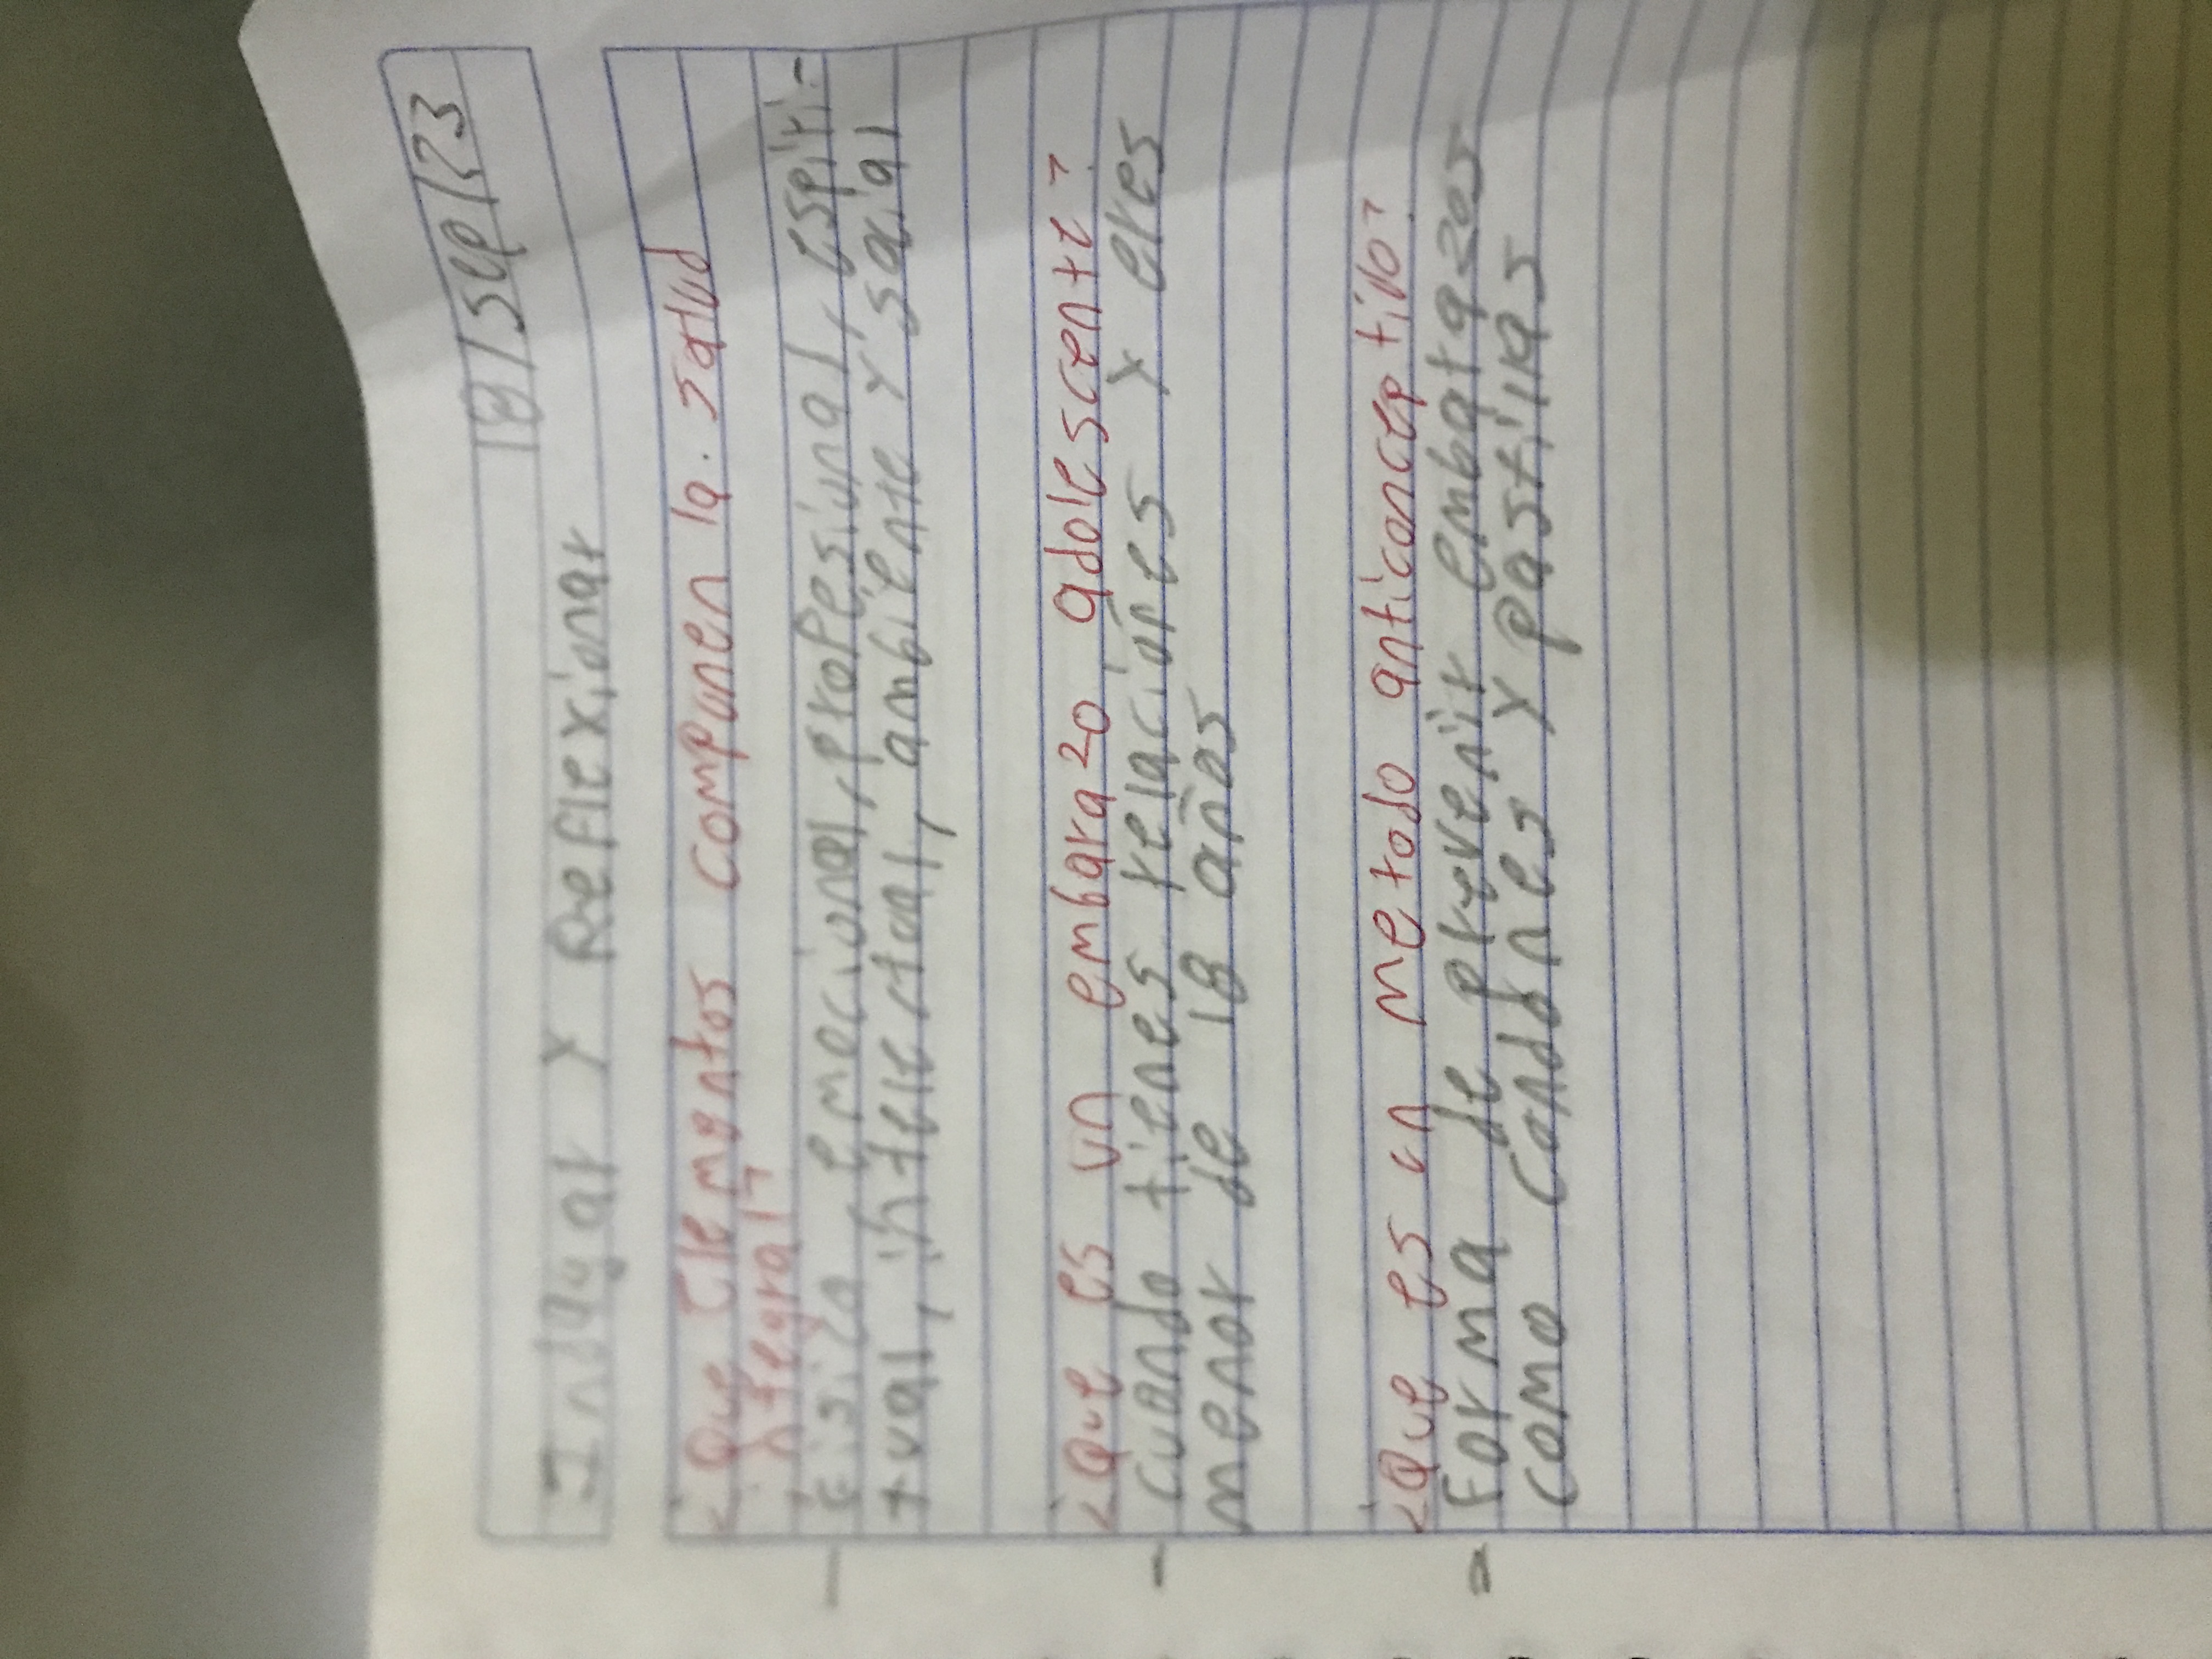 18/Sep/23
Indagar y Reflexionar
¿Que Elementos componen la salud
integral?
Fisica, emocional, profesional, espiri-
tual, intelectual, ambiente y social
¿Que es un embarazo adolescente?
cuando tienes relaciones y eres
menor de 18 años
¿Que es un metodo anticonceptivo?
Forma de prevenir embarazos
como condones y pastillas